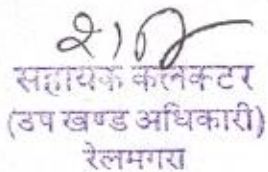 सहायक कलेक्टर
(उप खण्ड अधिकारी)
रेलमगरा